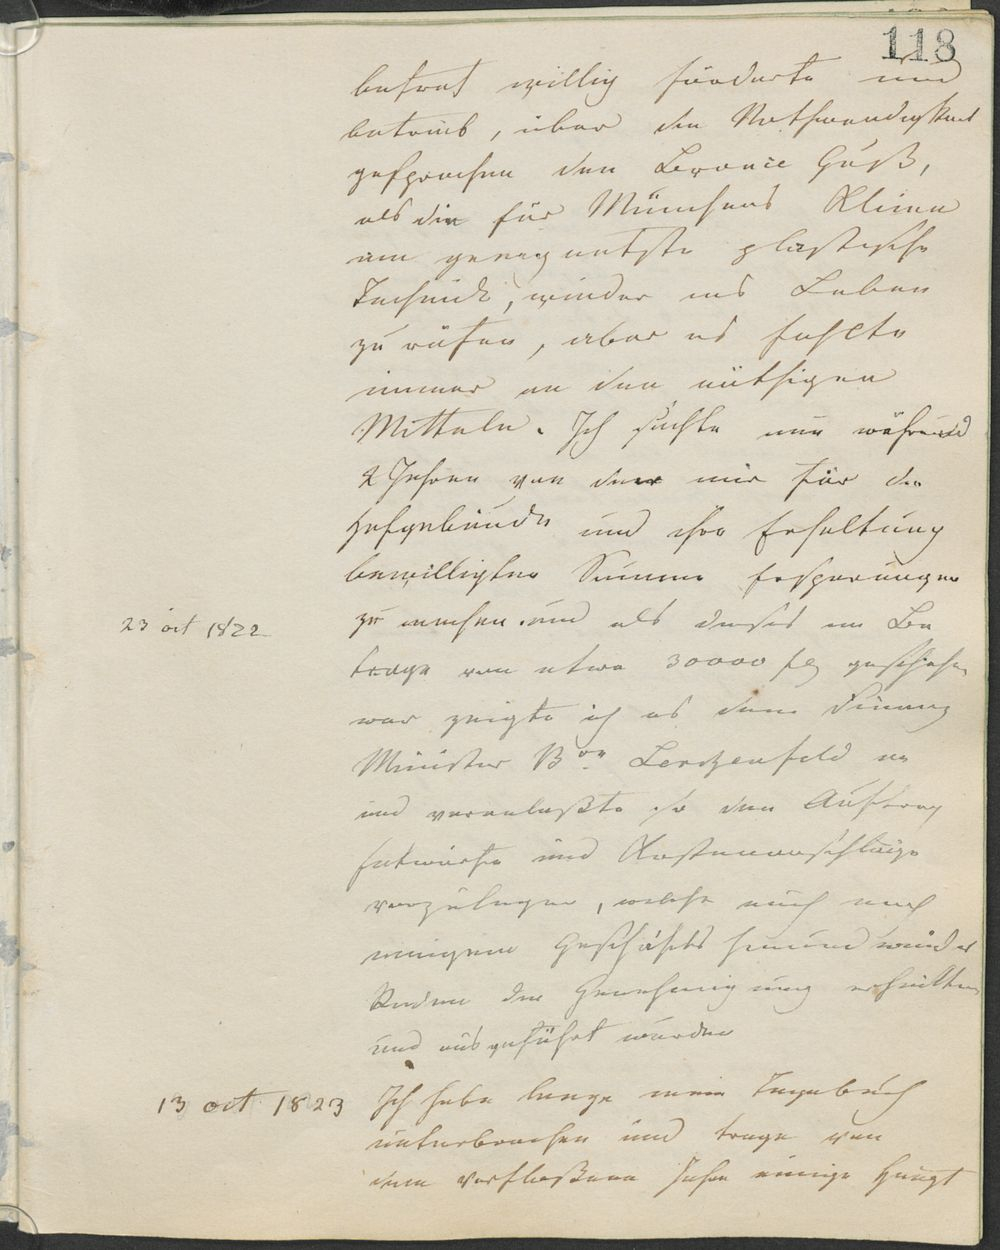 118
betraf willig förderte und
betrieb, über die Nothwendigkeit
gesprochen den Bronce Guß,
als die für Münchens Klima
am geeignetste plastische
Technick, wieder ins Leben
zu rufen, aber es fehlte
immer an den nöthigen
Mitteln. Ich suchte nun während
2 Jahren von der mir für die
Hofgebäude und ihre Erhaltung
bewilligten Summe Ersparungen
23 oct 1822
zu machen und als dieses im Be
trage von etwa 30000 fl geschehen
war zeigte ich es dem Finanz
Minister Bon Lerchenfeld an
und veranlaßte so den Auftrag
Entwürfe und Kostenanschläge
vorzulegen, welche auch nach
einigem Geschäfts hin und wieder
Reden die Genehmigung erhielten
und ausgeführt wurden
13 oct 1823
Ich habe lange mein Tagebuch
unterbrochen und trage von
dem verfloßenen Jahre einige Haupt